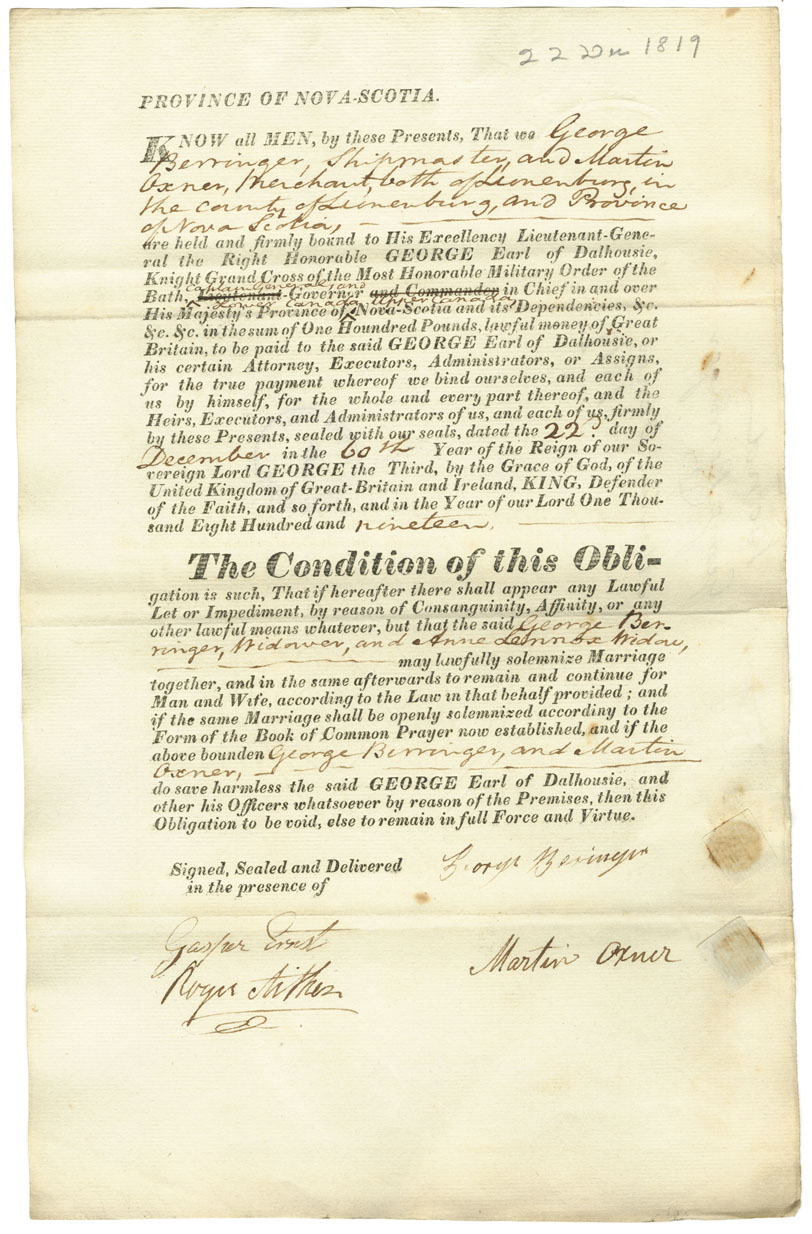 22 Dec 1819
PROVINCE OF NOVA-SCOTIA.
KNOW all MEN, by these Presents, That we George
Berringer, Shipmaster, and Martin
Oxner, Merchant, both of Lunenburg, in
the county of Lunenburg, and Province
of Nova Scotia,
are held and firmly bound to His Excellency Lieutenant-Gene-
ral the Right Honorable GEORGE Earl of Dalhousie,
Knight Grand Cross of the Most Honorable Military Order of the
Captain General, and
Bath, Lieutenant-Governor and Commander in Chief in and over
Lower Canada, Upper Canada
His Majesty's Province of Nova-Scotia and its Dependencies, &c.
&c. &c. in the sum of One Hundred Pounds, lawful money of Great
Britain, to be paid to the said GEORGE Earl of Dalhousie, or
his certain Attorney, Executors, Administrators, or Assigns,
for the true payment whereof we bind ourselves, and each of
us by himself, for the whole and every part thereof, and the
Heirs, Executors, and Administrators of us, and each of us, firmly
by these Presents, sealed with our seals, dated the 22d day of
December in the 60th Year of the Reign of our So-
vereign Lord GEORGE the Third, by the Grace of God, of the
United Kingdom of Great-Britain and Ireland, KING, Defender
of the Faith, and so forth, and in the Year of our Lord One Thou-
sand Eight Hundred and nineteen.
The Condition of this Obli-
gation is such, That if hereafter there shall appear any Lawful
Let or Impediment, by reason of Consanguinity, Affinity, or any
other lawful means whatever, but that the said George Ber-
ringer, Widower, and Anne Lennox Widow,
may lawfully solemnize Marriage
together, and in the same afterwards to remain and continue for
Man and Wife, according to the Law in that behalf provided; and
if the same Marriage shall be openly solemnized accordiny to the
Form of the Book of Common Prayer now established, and if the
above bounden George Berringer, and Martin
Oxner,
do save harmless the said GEORGE Earl of Dalhousie, and
other his Officers whatsoever by reason of the Premises, then this
Obligation to be void, else to remain in full Force and Virtue.
Signed, Sealed and Delivered
in the presence of
George Beringer
Gasper Ernst
Martin Oxner
Roger Aitken